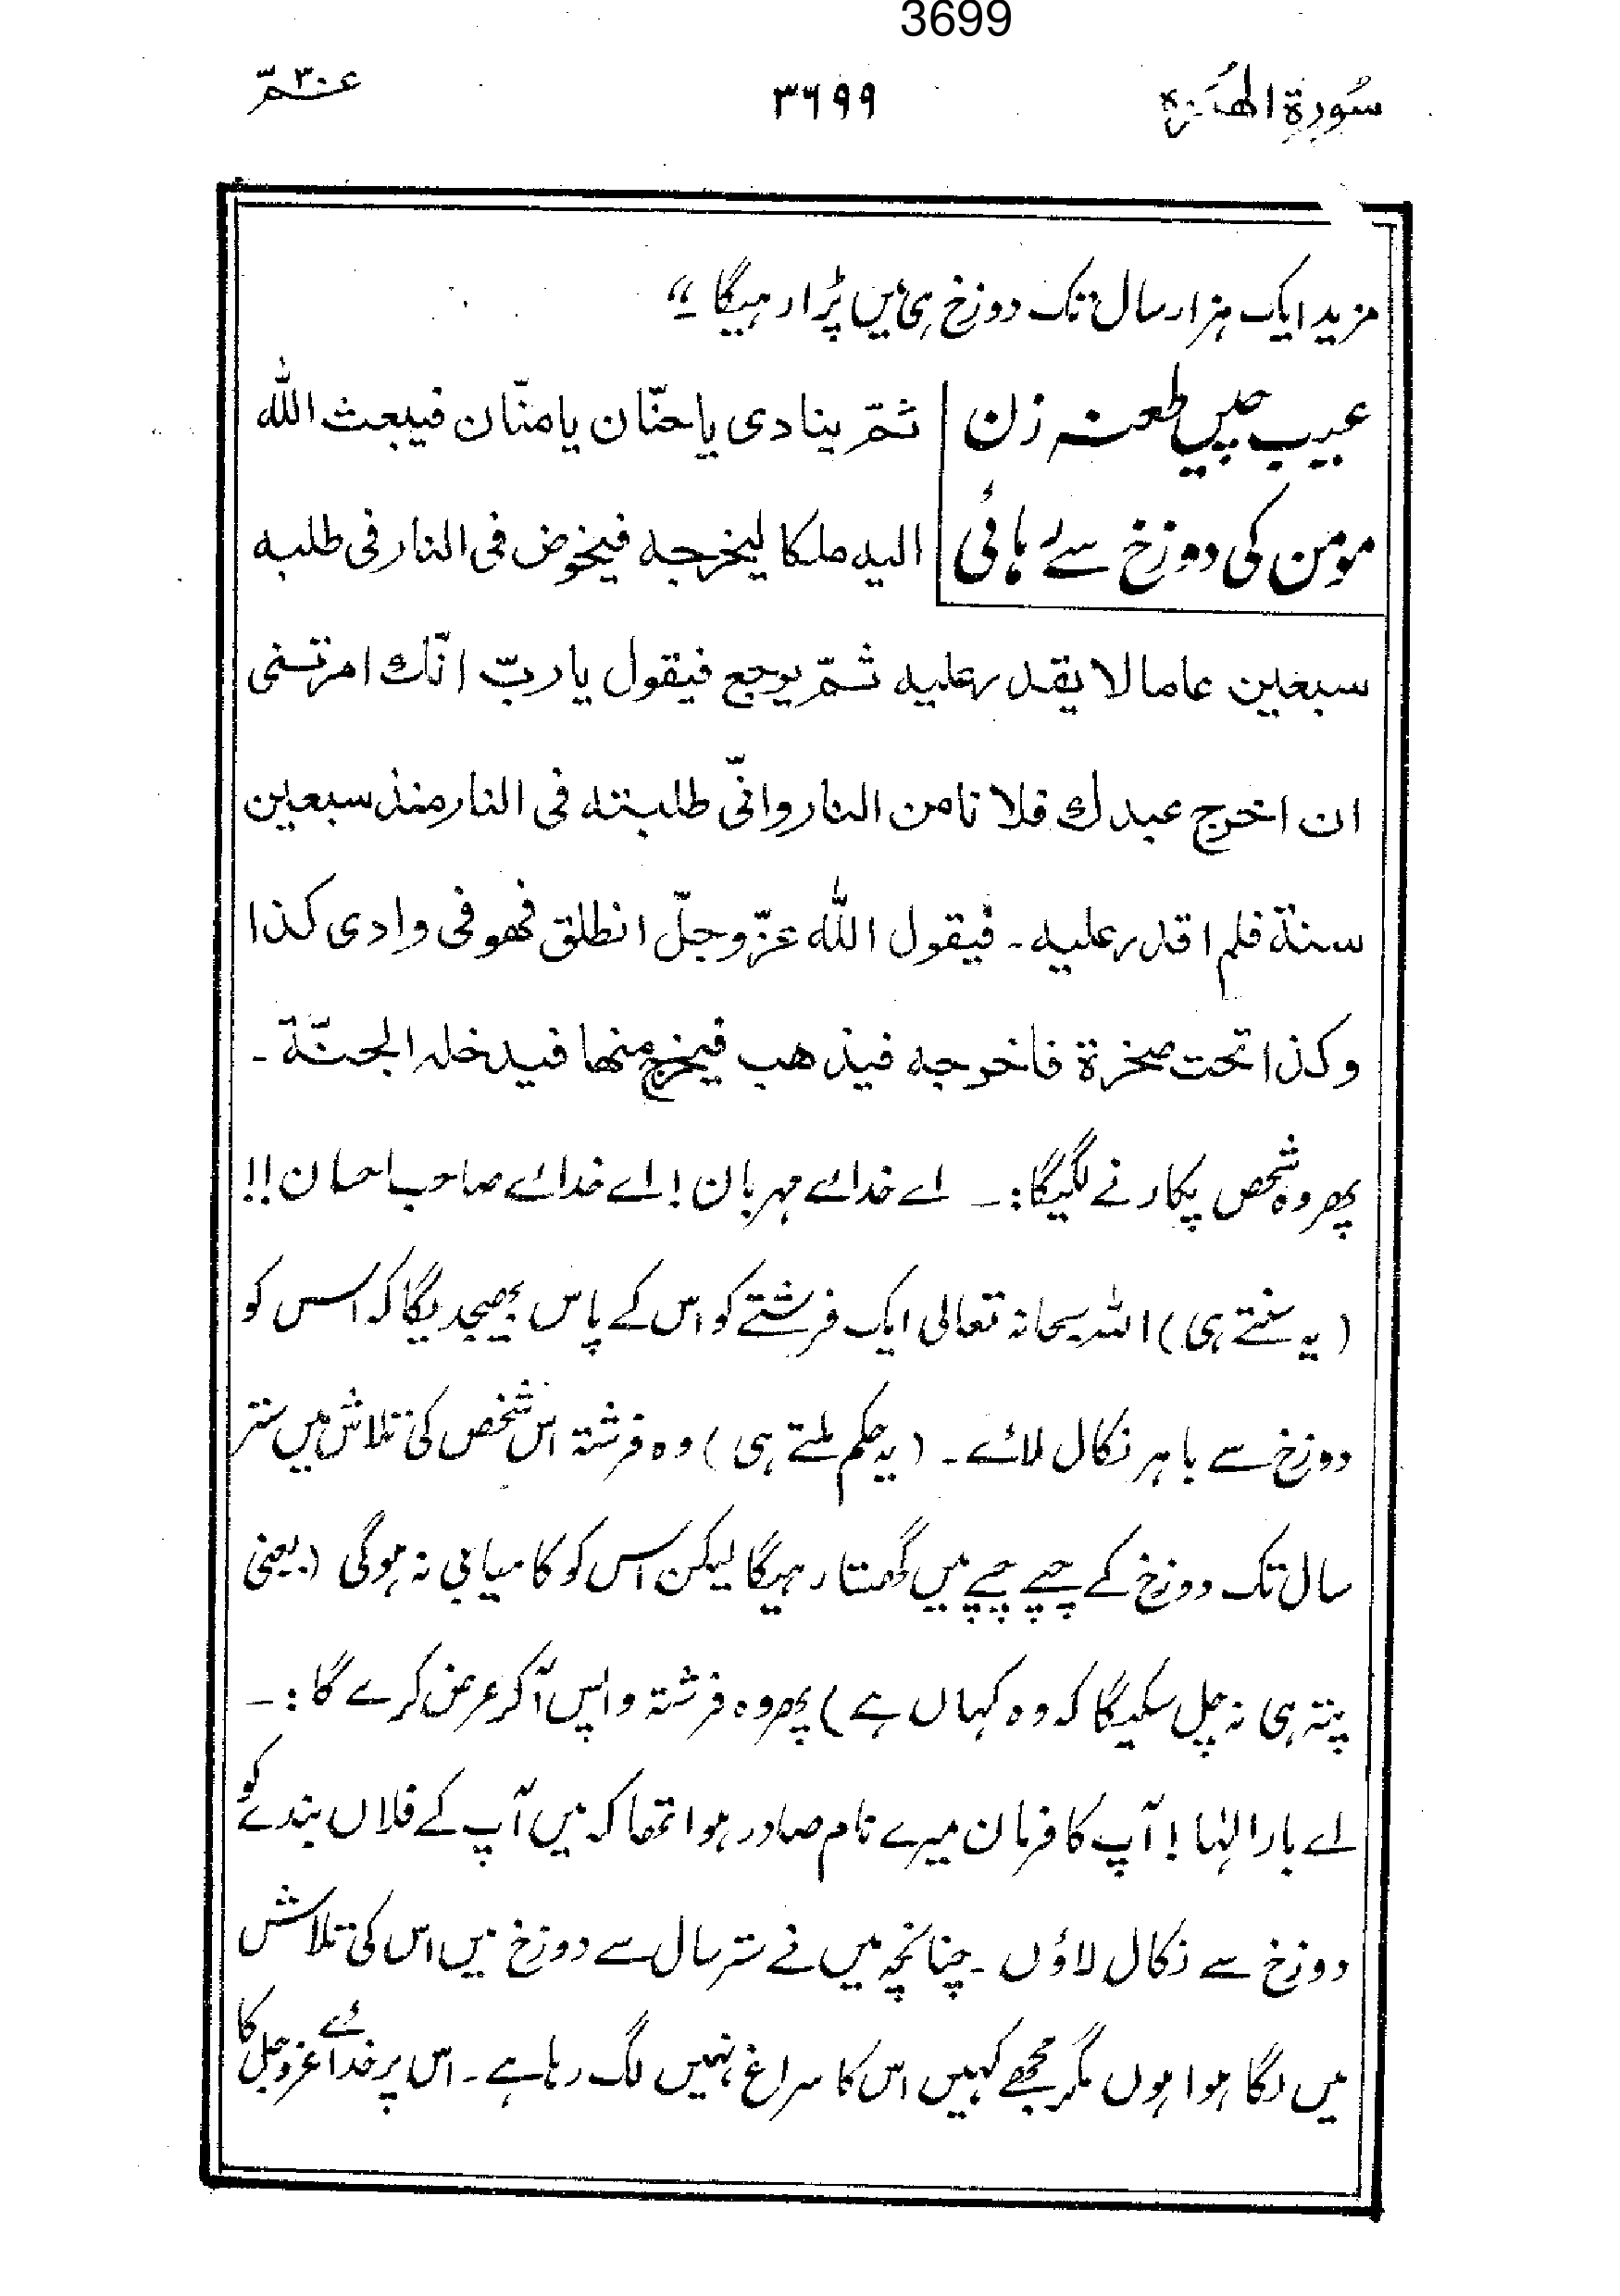 3699
سُورۃ الھُمَزہ ۳۶۹۹ عمّ ۳۰
مزید ایک ہزار سال تک دوزخ ہی میں پڑا رہیگا ـ"
عیب چیں طعنہ زن
مومن کی دوزخ سے رہائی
ثمّ ینادی یا حنّان یا منّان فیبعث اللّٰه
الیه ملکا لیخرجه فیخوض فی النار فی طلبه
سبعین عاما لا یقدر علیه ثمّ یرجع فیقول یا ربّ انّك امرتنی
ان اخرج عبدك فلانا من النار وانّی طلبته فی النار منذ سبعین
سنة فلم اقدر علیه ـ فیقول اللّٰه عزّ وجلّ انطلق فهو فی وادی کذا
وکذا تحت صخرة فاخرجه فیذهب فیخرج منها فیدخله الجنّة ـ
پھر وہ شخص پکارنے لگیگا :ـ اے خدائے مہربان ! اے خدائے صاحب احسان !!
(یہ سنتے ہی) اللہ سبحانہ تعالی ایک فرشتے کو اس کے پاس بھیجدیگا کہ اس کو
دوزخ سے باہر نکال لائے ـ (یہ حکم ملتے ہی) وہ فرشتہ اس شخص کی تلاش میں ستر
سال تک دوزخ کے چپے چپے میں گھستا رہیگا لیکن اس کو کامیابی نہ ہوگی (یعنی
پتہ ہی نہ چل سکیگا کہ وہ کہاں ہے) پھر وہ فرشتہ واپس آکر عرض کرے گا :ـ
اے بار الٰہا ! آپ کا فرمان میرے نام صادر ہوا تھا کہ میں آپ کے فلاں بندے کو
دوزخ سے نکال لاؤں ـ چنانچہ میں نے ستر سال سے دوزخ میں اس کی تلاش
میں لگا ہوا ہوں مگر مجھے کہیں اس کا سراغ نہیں لگ رہا ہے ـ اس پر خدائے عز و جل کا